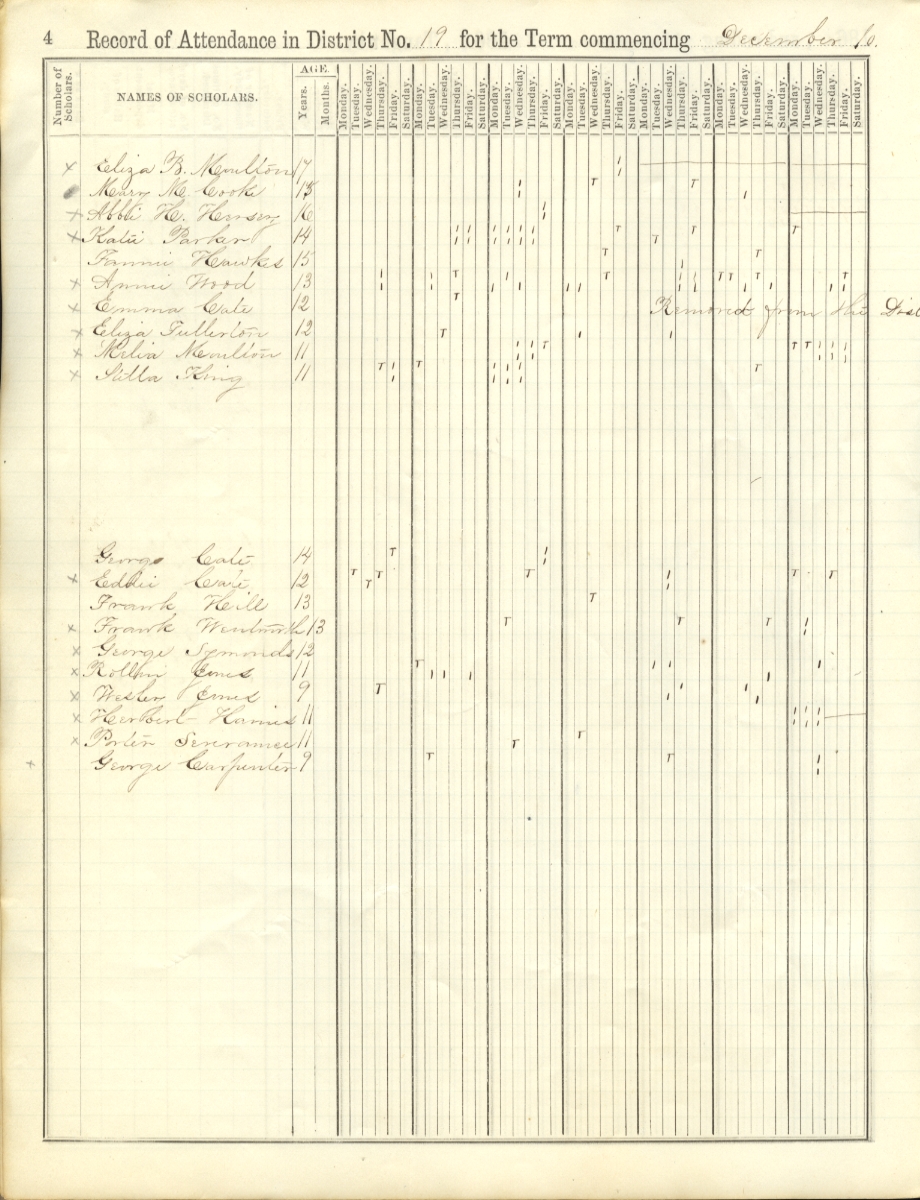 4 Record of Attendance in District No. 19 for the Term commencing December 10.
Number of Scholars. NAMES OF SCHOLARS. AGE. Years. Months. Monday. Tuesday. Wednesday. Thursday. Friday. Saturday. Monday. Tuesday. Wednesday. Thursday. Friday. Saturday. Monday. Tuesday. Wednesday. Thursday. Friday. Saturday. Monday. Tuesday. Wednesday. Thursday. Friday. Saturday. Monday. Tuesday. Wednesday. Thursday. Friday. Saturday. Monday. Tuesday. Wednesday. Thursday. Friday. Saturday. Monday. Tuesday. Wednesday. Thursday. Friday. Saturday.
x Eliza B. Moulton 17
Mary M. Cooke 15
x Abbi H. Hersey 16
x Katie Parker 14
Fannie Hawkes 15
x Annie Wood 13
x Emma Cate 12 Removed from the Dist
x Eliza Fullerton 12
x Melia Moulton 11
x Stilla King 11
George Cate 14
x Eddie Cate 12
Frank Heill 13
x Frank Wentworth 13
x George Symonds 12
x Rollin Jones 11
x Wesley Jones 9
x Herbert Harris 11
x Porter 11
x George Carpenter 9